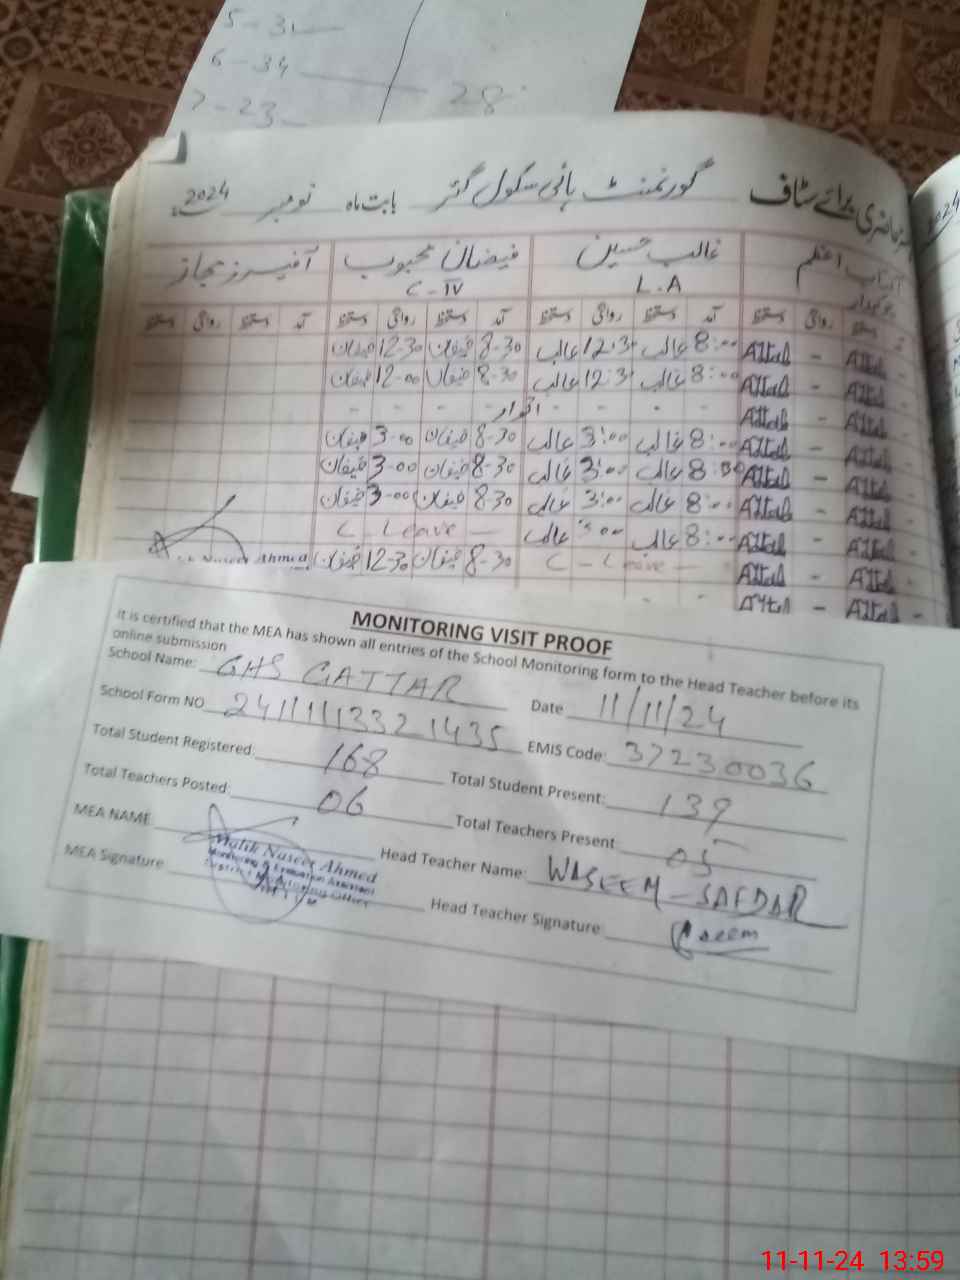 5 - 31
6 - 34
7 - 23
28
حاضری برائے سٹاف گورنمنٹ ہائی سکول گٹر بابت ماہ نومبر 2024
2024
آفتاب اعظم غالب حسین فیضان محبوب آفیسرز مجاز
چوکیدار L.A C-IV
دستخط روانگی دستخط آمد دستخط روانگی دستخط آمد دستخط روانگی دستخط آمد دستخط روانگی دستخط
Aftab - Aftab 8:00 غالب 12:30 غالب 8-30 فیضان 12-30 فیضان
Aftab - Aftab 8:00 غالب 12:3 غالب 8-30 فیضان 12-00 فیضان
Aftab - Aftab - - - - اتوار - - -
Aftab - Aftab 8:00 غالب 3:00 غالب 8-30 فیضان 3-00 فیضان
Aftab - Aftab 8:00 غالب 3:00 غالب 8-30 فیضان 3-00 فیضان
Aftab - Aftab 8:00 غالب 3:00 غالب 8-30 فیضان 3-00 فیضان
Aftab - Aftab 8:00 غالب 3:00 غالب C - Leave -
Aftab - Aftab C - Leave - 8-30 فیضان 12-30 فیضان
Naseer Ahmed
Aftab - Aftab - - -
MONITORING VISIT PROOF
It is certified that the MEA has shown all entries of the School Monitoring form to the Head Teacher before its
online submission
School Name: GHS GATTAR Date 11/11/24
School Form NO 24111113321435 EMIS Code: 37230036
Total Student Registered: 168 Total Student Present: 139
Total Teachers Posted: 06 Total Teachers Present 05
MEA NAME Head Teacher Name: WASEEM-SAFDAR
Malik Naseer Ahmed
Monitoring & Evaluation Assistant
District Monitoring Officer
MEA Signature Head Teacher Signature: Waseem
11-11-24 13:59